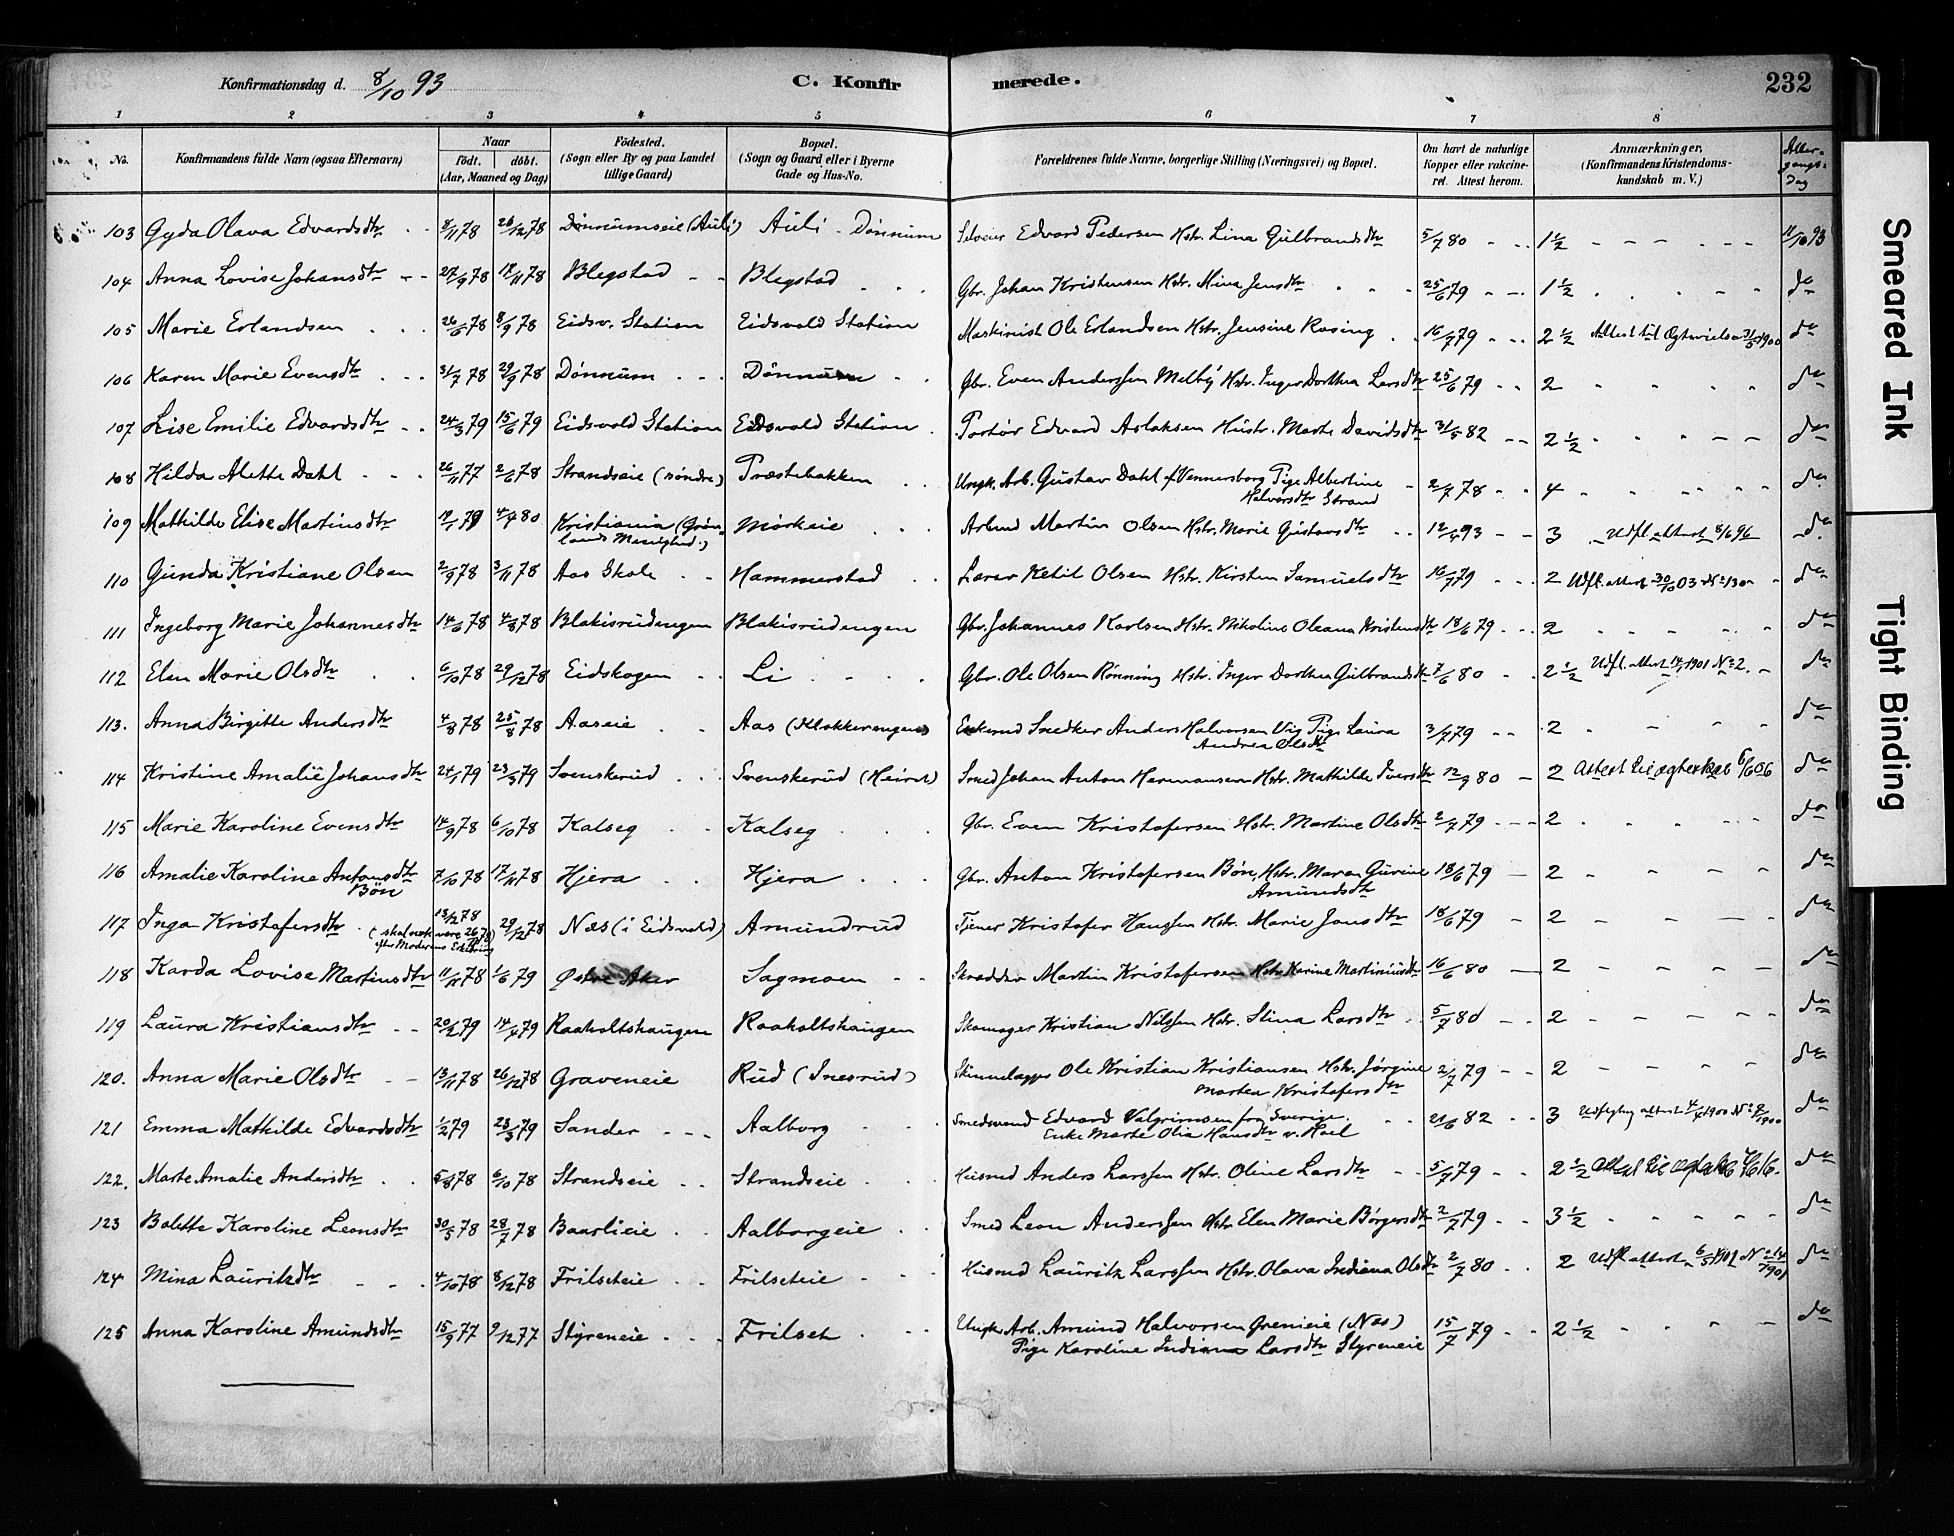 Konfirmationsdag d. 8/10 93
C. Konfir merede.
232
1 2 3 4 5 6 7 8
No. Konfirmandens fulde Navn (ogsaa Efternavn) Naar födt. döbt. (Aar, Maaned og Dag) Födested. (Sogn eller By og paa Landet tillige Gaard) Bopæl. (Sogn og Gaard, eller i Byerne Gade og Hus-No. Forældrenes fulde Navne, borgerlige Stilling (Næringsvei) og Bopæl. Om havt de naturlige Kopper eller vakcineret. Attest herom. Anmærkninger. (Konfirmandens Kristendomskundskab m. V.) Altergangs-Dag
103 Gyda Olava Edvardsdtr 8/11 78 26/12 78 Dönnumseie (Auli) Auli - Dönnum Selveier Edvard Pedersen Hstr. Lina Gulbrandsdtr 5/7 80 1 1/2 11/10 93
104 Anna Lovise Johansdtr 27/9 78 17/11 78 Blegstad Blegstad Gbr. Johan Kristensen Hstr. Mina Jensdtr 25/6 79 1 1/2 do
105 Marie Erlandsen 26/6 78 8/9 78 Eidsv. Station Eidsvold Station Maskinist Ole Erlandsen Hstr. Jensine Rosing 16/7 79 2 1/2 Attest til Ægtevielse 31/5 1900 do
106 Karen Marie Evensdtr 31/7 78 29/9 78 Dönnum Dönnum Gbr. Even Anderssen Melby Hstr. Inger Dorthea Larsdtr 25/6 79 2 do
107 Lise Emilie Edvardsdtr 24/3 79 15/6 79 Eidsvold Station Eidsvold Station Portör Edvard Aslaksen Hustr. Marte Davidsdtr 31/5 82 2 1/2 do
108 Hilda Alette Dahl 26/11 77 2/6 78 Strandseie (söndre) Præstebakken Ungk. Arb. Gustav Dahl af Vennersborg Pige Albertine
Halvorsdtr Strand 2/7 78 4 do
109 Mathilde Elise Martinsdtr 4/4 80 Kristiania (Grön-
lands Menighed.) Mörkeie Arbmd Martin Olsen Hstr. Marie Gustavsdtr 12/4 93 3 Udfl. attest 8/6 96 do
110 Gunda Kristiane Olsen 2/9 78 3/11 78 Aas Skole Hammerstad Lærer Ketil Olsen Hstr. Kirsten Samuelsdtr 16/7 79 2 Udfl. attest 30/10 03 No 130 do
111 Ingeborg Marie Johannesdtr 14/6 78 4/8 78 Blakisrudengen Blakisrudengen Gbr. Johannes Karlsen Hstr. Nikoline Oleana Kristensdtr 18/6 79 2 do
112 Elen Marie Olsdtr 6/10 78 29/12 78 Eidskogen Li Gbr. Ole Olsen Rönning Hstr. Inger Dorthea Gulbrandsdtr 7/6 80 2 1/2 Udfl. attest 1901 No 2. do
113. Anna Birgitte Andersdtr 4/8 78 25/8 78 Aaseie Aas (Klokkerengen) Enkemd Snedker Anders Halvorsen Pige Laura
Andrea Olsdtr 3/7 79 2 do
114 Kristine Amalie Johansdtr 24/1 79 23/3 79 Svenskerud Svenskerud Smed Johan Anton Hermansen Hstr. Mathilde Iversdtr 12/9 80 2 Attest til ægteskab 6/6 06 do
115 Marie Karoline Evensdtr 14/9 78 6/10 78 Kalseg Kalseg Gbr. Even Kristofersen Hstr. Martine Olsdtr 2/7 79 2 do
116 Amalie Karoline Antonsdtr
Bön 7/10 78 17/11 78 Hjera Hjera Gbr. Anton Kristofersen Bön, Hstr. Maren Gurine
Amundsdtr 18/6 79 2 do
117 Inga Kristofersdtr 13/12 78 (skal nok være 26/ 78
efter Moderens Erklæring) 29/12 78 Næs (i Eidsvold) Amundrud Tjener Kristofer Hanssen Hstr. Marie Jonsdtr 18/6 79 2 do
118 Karda Lovise Martinsdtr 11/11 78 1/6 79 Östre Aker Sagmoen Skrædder Martin Kristofersen Hstr Karine Martiniusdtr 16/6 80 2 do
119 Laura Kristiansdtr 20/2 79 14/4 79 Raaholtshaugen Raaholtshaugen Skomager Kristian Nilssen Hstr. Stina Larsdtr 5/7 80 2 do
120. Anna Marie Olsdtr 13/11 78 26/12 78 Graveneie Rud (Inesrud) Ole Kristian Kristiansen Hstr. Jörgine
Martea Kristofersdtr 2/7 79 2 do
121 Emma Mathilde Edvardsdtr 1/2 79 23/3 79 Sander Aalborg Smedsvend Edvard Valgrimsen fra Sverige.
Enke Marte Olia Hansdtr v. Hoel 21/6 82 3 Udflytng attest 4/4 1900 No 7/1900 do
122. Marte Amalie Andersdtr 5/8 78 6/10 78 Strandseie Strandseie Husmd Anders Larssen Hstr. Oline Larsdtr 5/7 79 2 1/2 Attest til do
123 Bolette Karoline Leonsdtr 30/5 78 28/7 78 Baarlieie Aalborgeie Smed Leon Anderssen Hstr Elen Marie Börgersdtr 2/7 79 3 1/2 do
124 Mina Lauritzdtr 4/10 78 8/12 78 Frilseteie Frilseteie Husmd Lauritz Larssen Hstr. Olava Indiana Olsdtr 2/7 80 2 Udfl. attest 6/5 1901 No 14/1901 do
125 Anna Karoline Amundsdtr 15/9 77 9/12 77 Styreneie Frilset Ungk. Arb. Amund Halvorsen Grenieie (Næs)
Pige Karoline Indiana Larsdtr Styreneie 15/7 79 2 1/2 do
Smeared Ink
Tight Binding